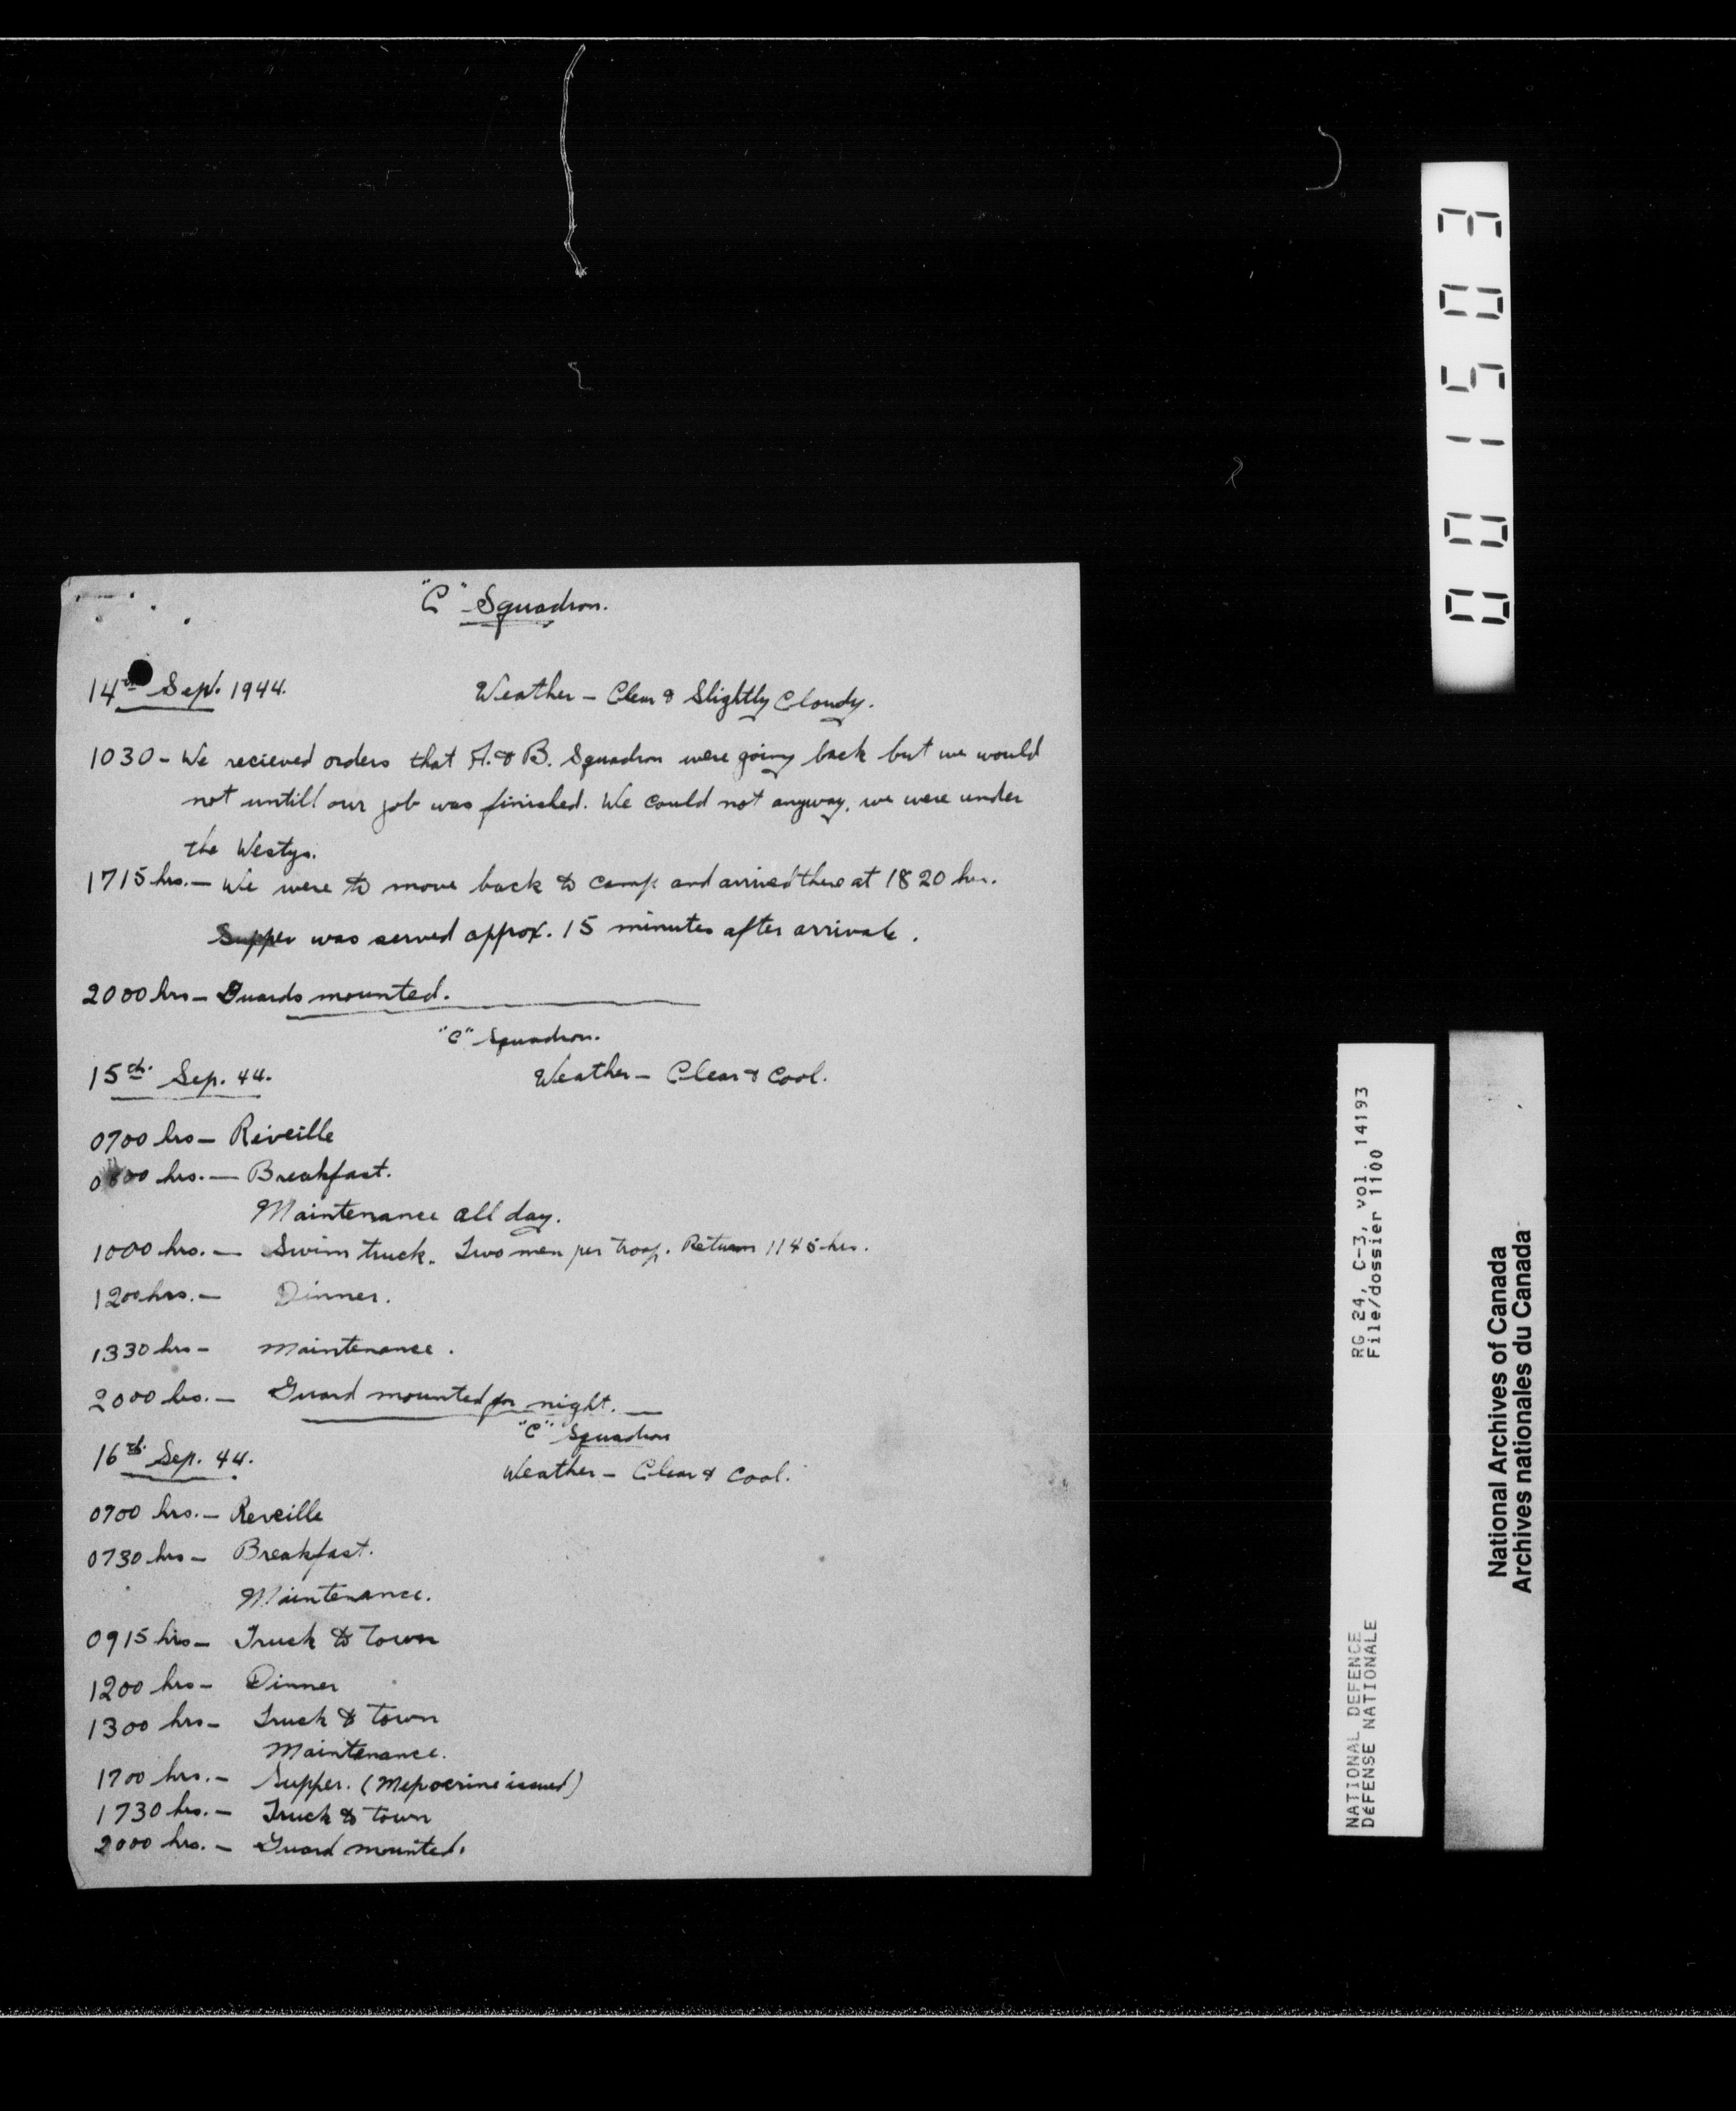 "C" Squadron.
14th Sep. 1944. Weather - Clear & Slightly Cloudy.
1030 - We recieved orders that A. & B. Squadron were going back but we would
not untill our job was finished. We could not anyway, we were under
the Westys.
1715 hrs. - We were to move back to camp and arrived there at 1820 hrs.
Supper was served approx. 15 minutes after arrivale.
2000 hrs - Guards mounted.
"C" Squadron.
15th. Sep. 44. Weather - Clear & Cool.
0700 hrs - Reveille
0800 hrs. - Breakfast.
Maintenance all day.
1000 hrs. - Swim truck. Two men per troop. Return 1145 hrs.
1200 hrs. - Dinner.
1330 hrs - Maintenance.
2000 hrs. - Guard mounted for night.
"C" Squadron
16th. Sep. 44. Weather - Clear & Cool.
0700 hrs. - Reveille
0730 hrs - Breakfast.
Maintenance.
0915 hrs - Truck to Town
1200 hrs - Dinner
1300 hrs - Truck to Town
Maintenance.
1700 hrs. - Supper. (Mepocrine issued)
1730 hrs. - Truck to Town
2000 hrs. - Guard mounted.
001503
NATIONAL DEFENCE RG 24, C-3, vol. 14193
DÉFENSE NATIONALE File/dossier 1100
National Archives of Canada
Archives nationales du Canada